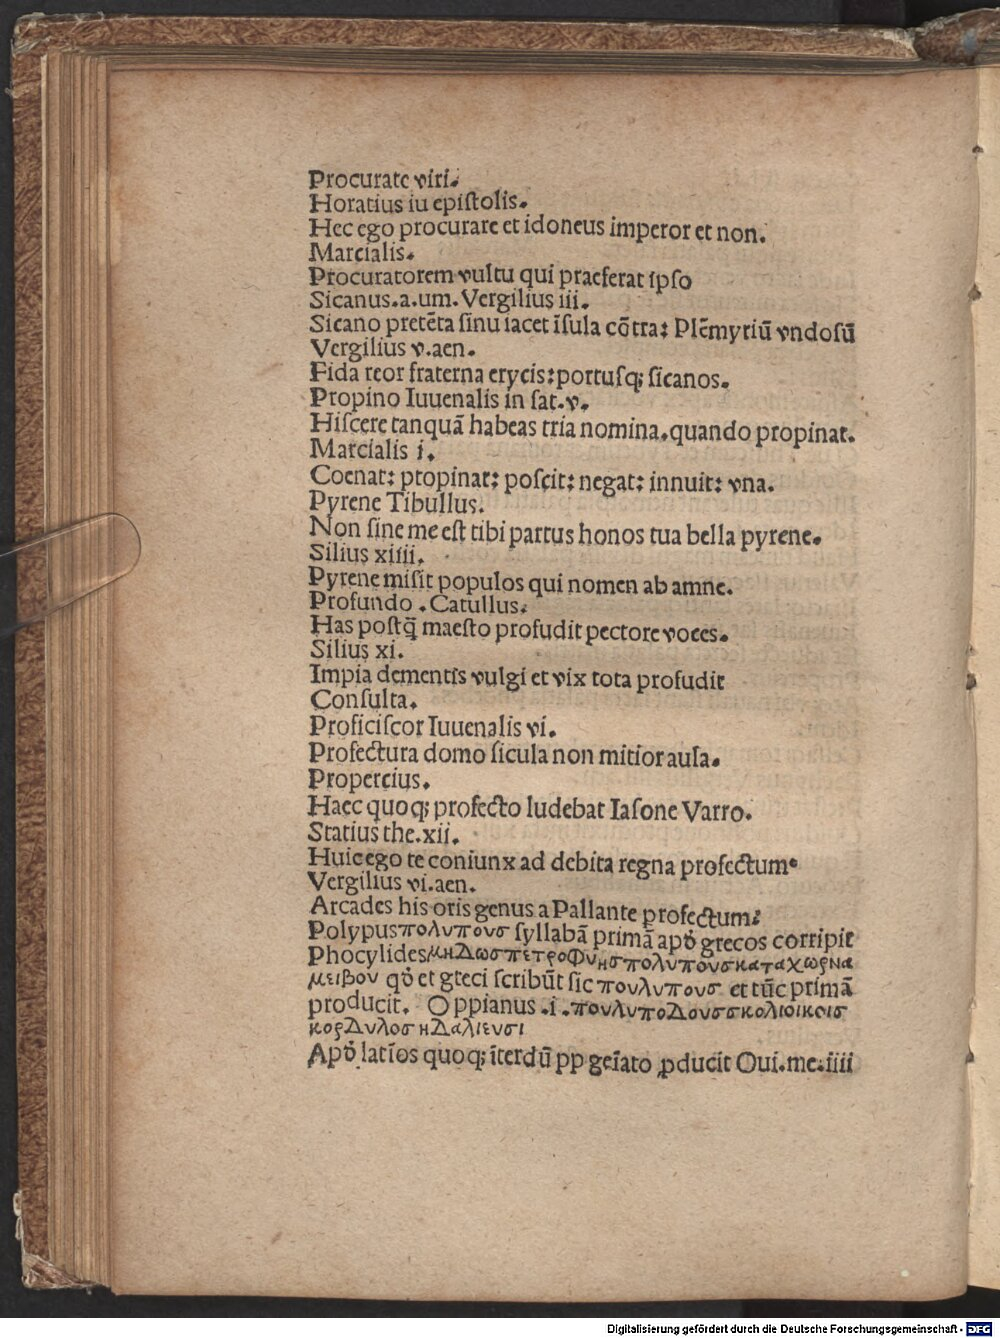 Procurate viri.
Horatius iu epiſtolis.
Hec ego procurare et idoneus imperor et non.
Marcialis.
Procuratorem vultu qui praeferat ipſo
Sicanus.a.um. Vergilius iii.
Sicano pretēta ſinu iacet īſula cōtra: Plēmyriū vndoſū
Vergilius v.aen.
Fida reor fraterna erycis:portuſqꝫ ſicanos.
Propino Iuuenalis in ſat.v.
Hiſcere tanquā habeas tria nomina.quando propinat.
Marcialis i.
Coenat: propinat: poſcit: negat: innuit: vna.
Pyrene Tibullus.
Non ſine me eſt tibi partus honos tua bella pyrene.
Silius xiiii.
Pyrene miſit populos qui nomen ab amne.
Profundo .Catullus.
Has poſtq̄ maeſto profudit pectore voces.
Silius xi.
Impia dementis vulgi et vix tota profudit
Conſulta.
Proficiſcor Iuuenalis vi.
Profectura domo ſicula non mitior aula.
Propercius.
Haec quoqꝫ profecto ludebat Iaſone Varro.
Statius the.xii.
Huic ego te coniunx ad debita regna profectum.
Vergilius vi.aen.
Arcades his oris genus a Pallante profectum:
Polypus πολυπουσ ſyllabā primā apd̕ grecos corripit
Phocylides μηΔωσπετροΦυησπολυπουσκαταχωρηα
μειβου qd̕ et greci ſcribūt ſic πουλυπουσ et tūc primā
producit. Oppianus .i. πουλυποΔουσσκολιοικοισ
κορΔυλοσηΔαλιευσι
Apd̕ latīos quoqꝫ īterdū pp geīato ꝓducit Oui.me.iiii
Digitalisierung gefördert durch die Deutsche Forschungsgemeinschaft - DFG